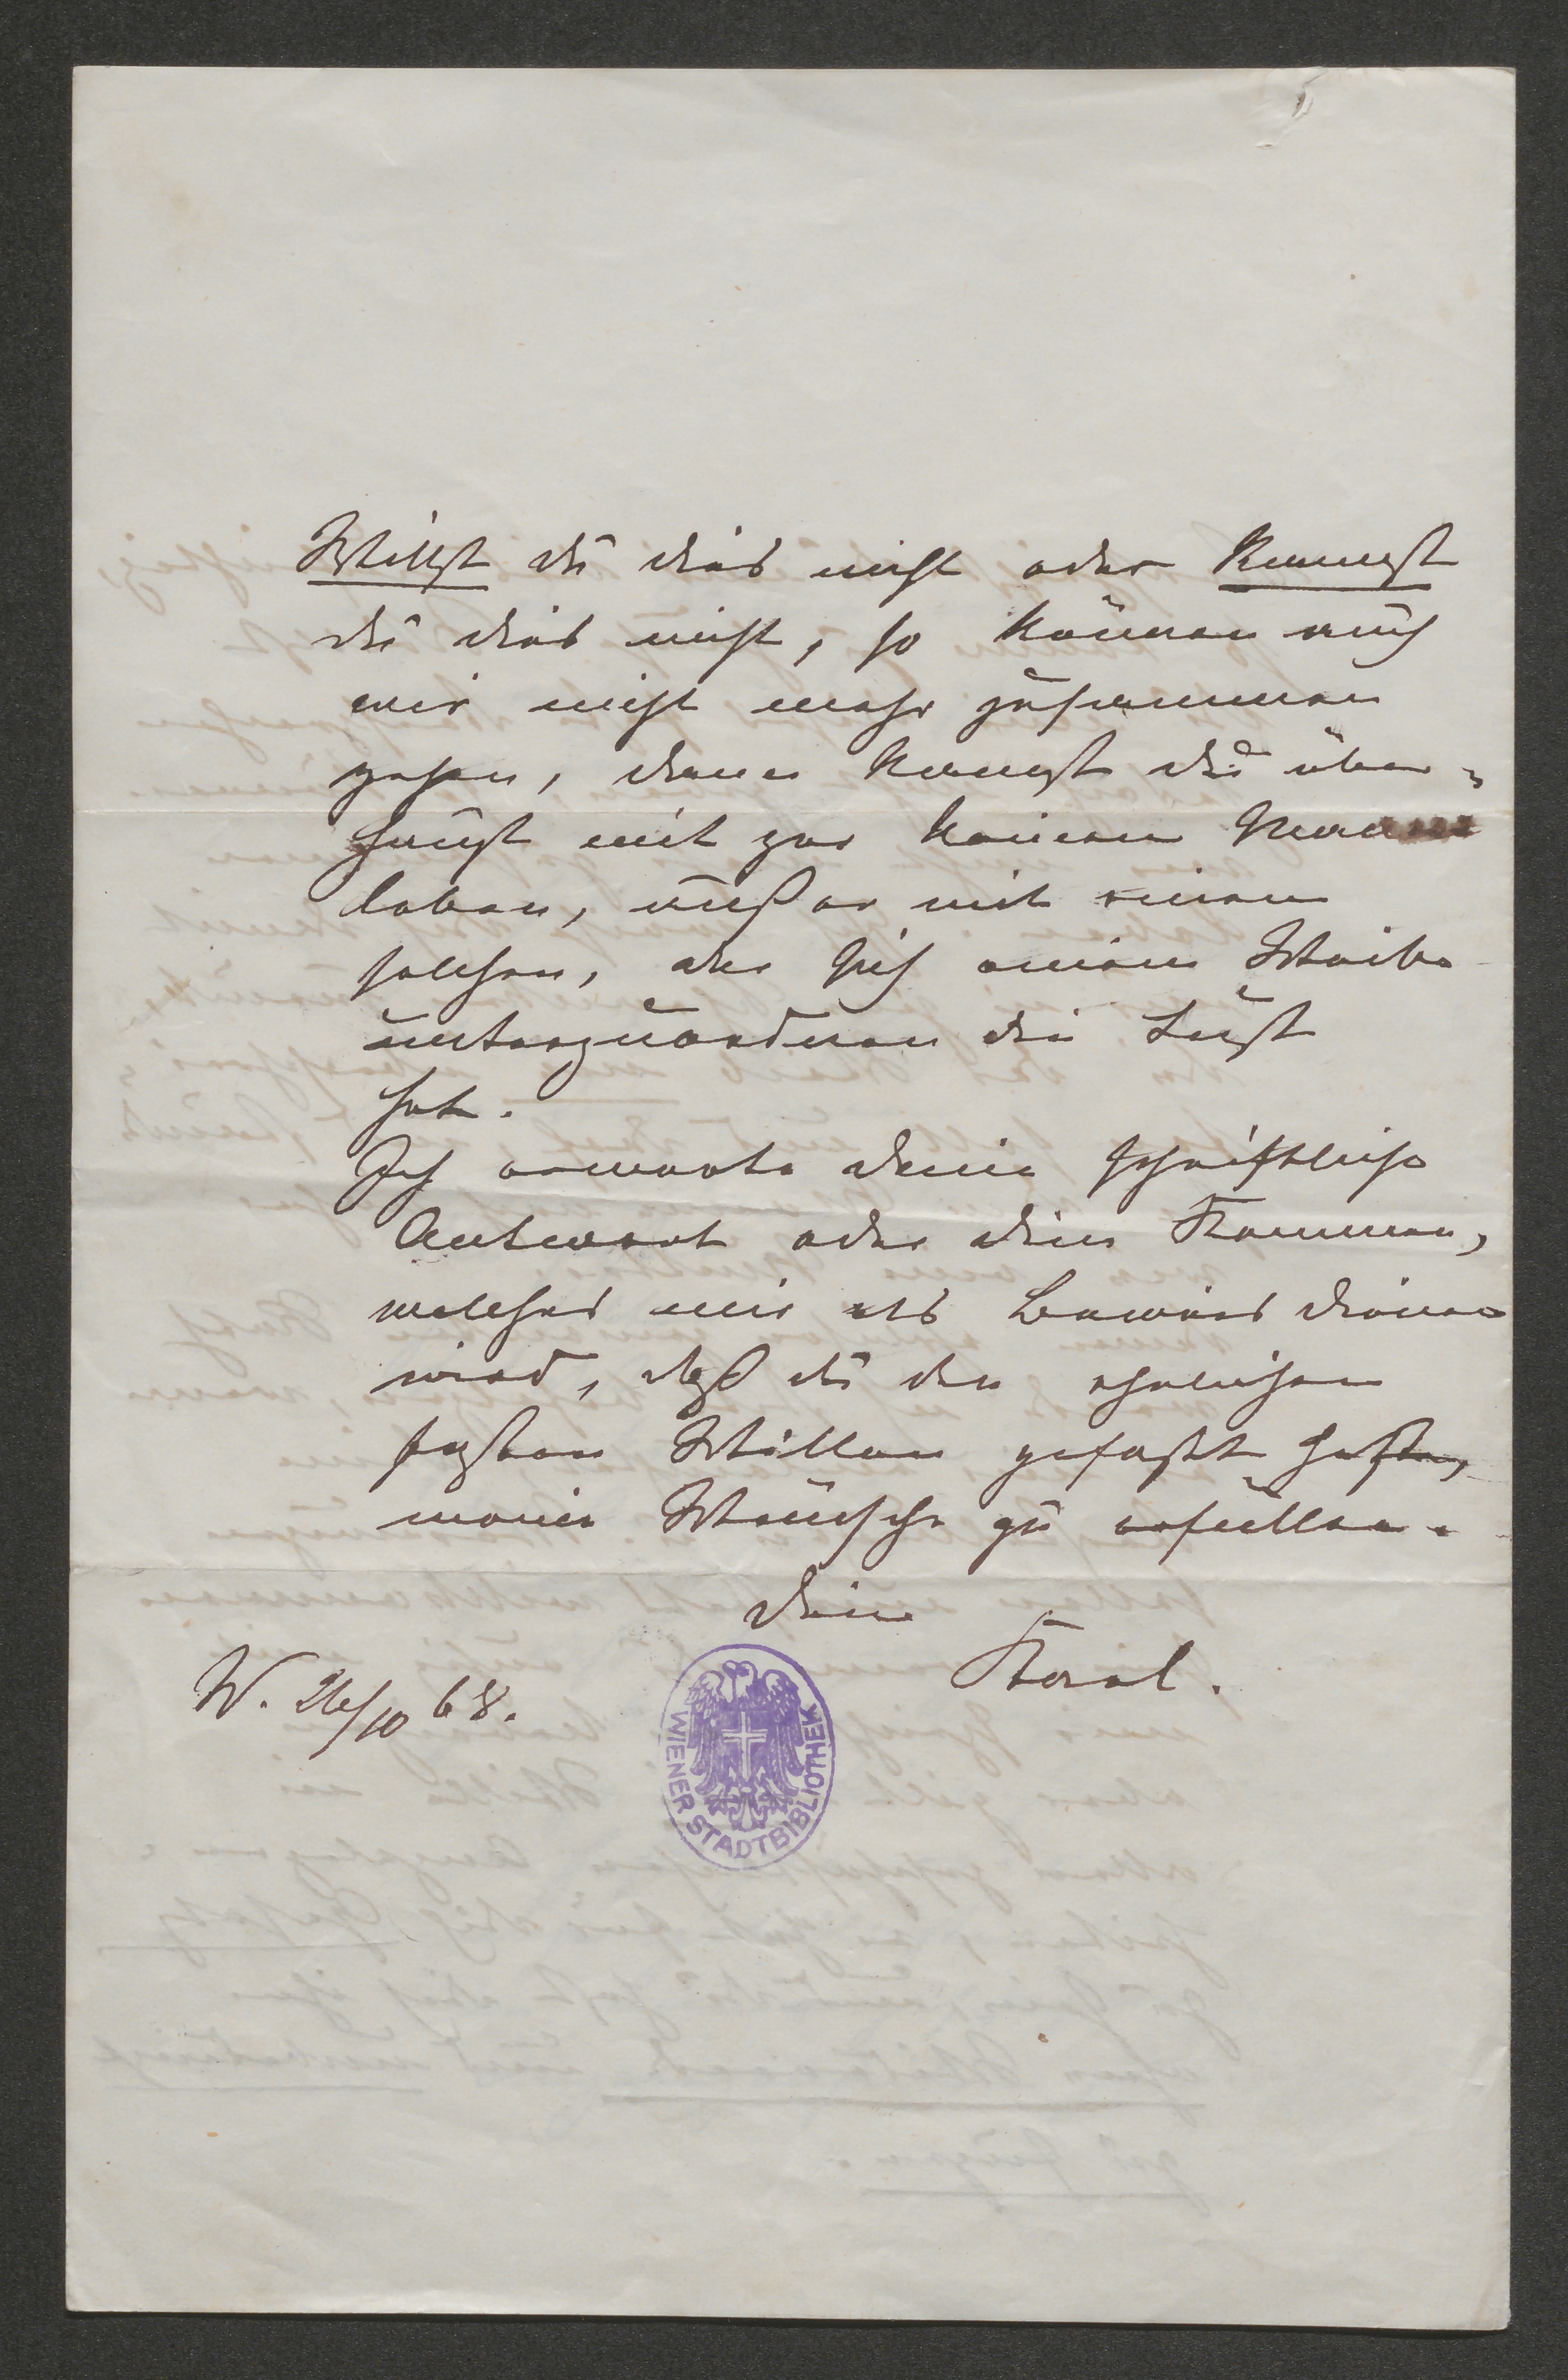 Willst du dies nicht oder kannst
du dies nicht, so können auch
wir nicht mehr zusammen
gehen, denn kannst du über-
haupt mit gar keinem Mann
leben, außer mit einem
solchen, der sich einem Weibe
unterzuordnen die Lust
hat.
Ich erwarte deine schriftliche
Antwort oder dein Kommen,
welches mir als Beweis dienen
wird, daß du den ehrlichen
festen Willen gefaßt hast,
meine Wünsche zu erfüllen.
dein
Karl.
W. 26/10 68.
WIENER STADTBIBLIOTHEK